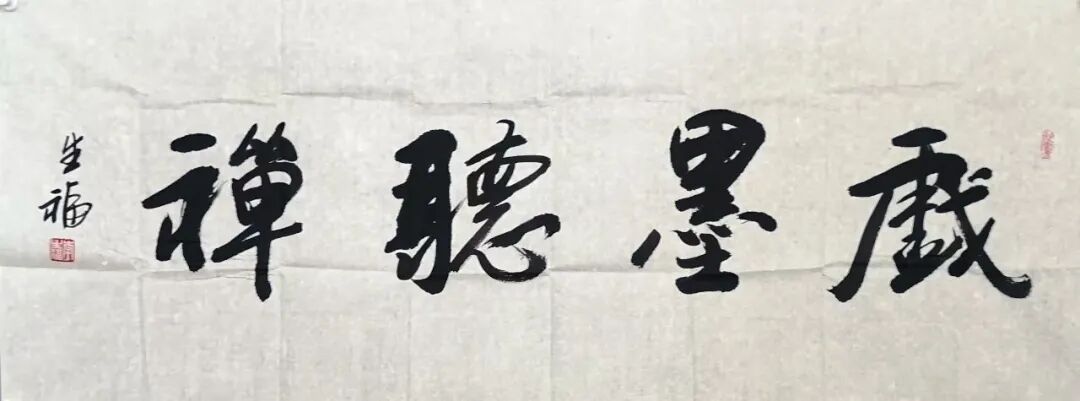 戲墨聽禪
生福